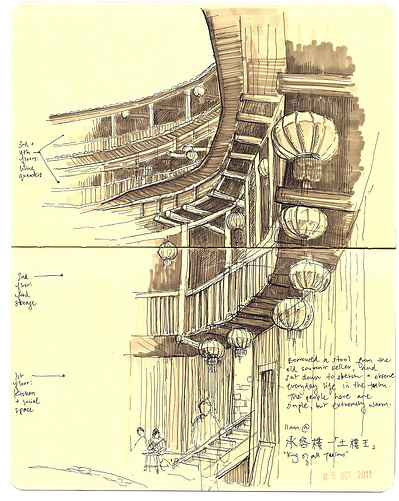 3rd +
4th
floors:
living
quarters
2nd
floor:
food
storage
1st
floor:
kitchen
+ social
space
Borrowed a stool from the
old souvenir seller, and
sat down to sketch + observe
everyday life in the tulou.
The people here are
simple, but extremely warm.
11am @
承啓樓 -「土樓王」
"King of all Tulous"
09 OCT 2011